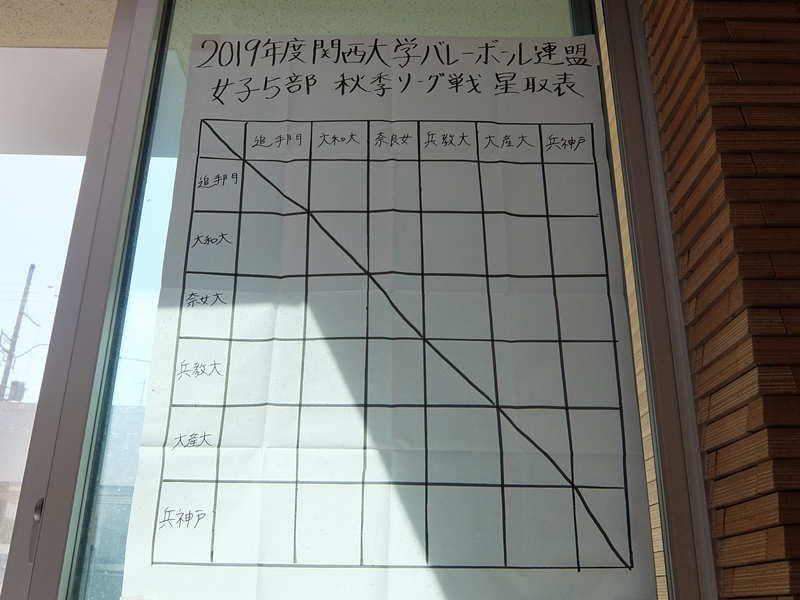 2019年度関西大学バレーボール連盟
女子5部 秋季リーグ戦 星取表
追手門 大和大 奈良女 兵教大 大産大 兵神戸
追手門
大和大
奈女大
兵教大
大産大
兵神戸